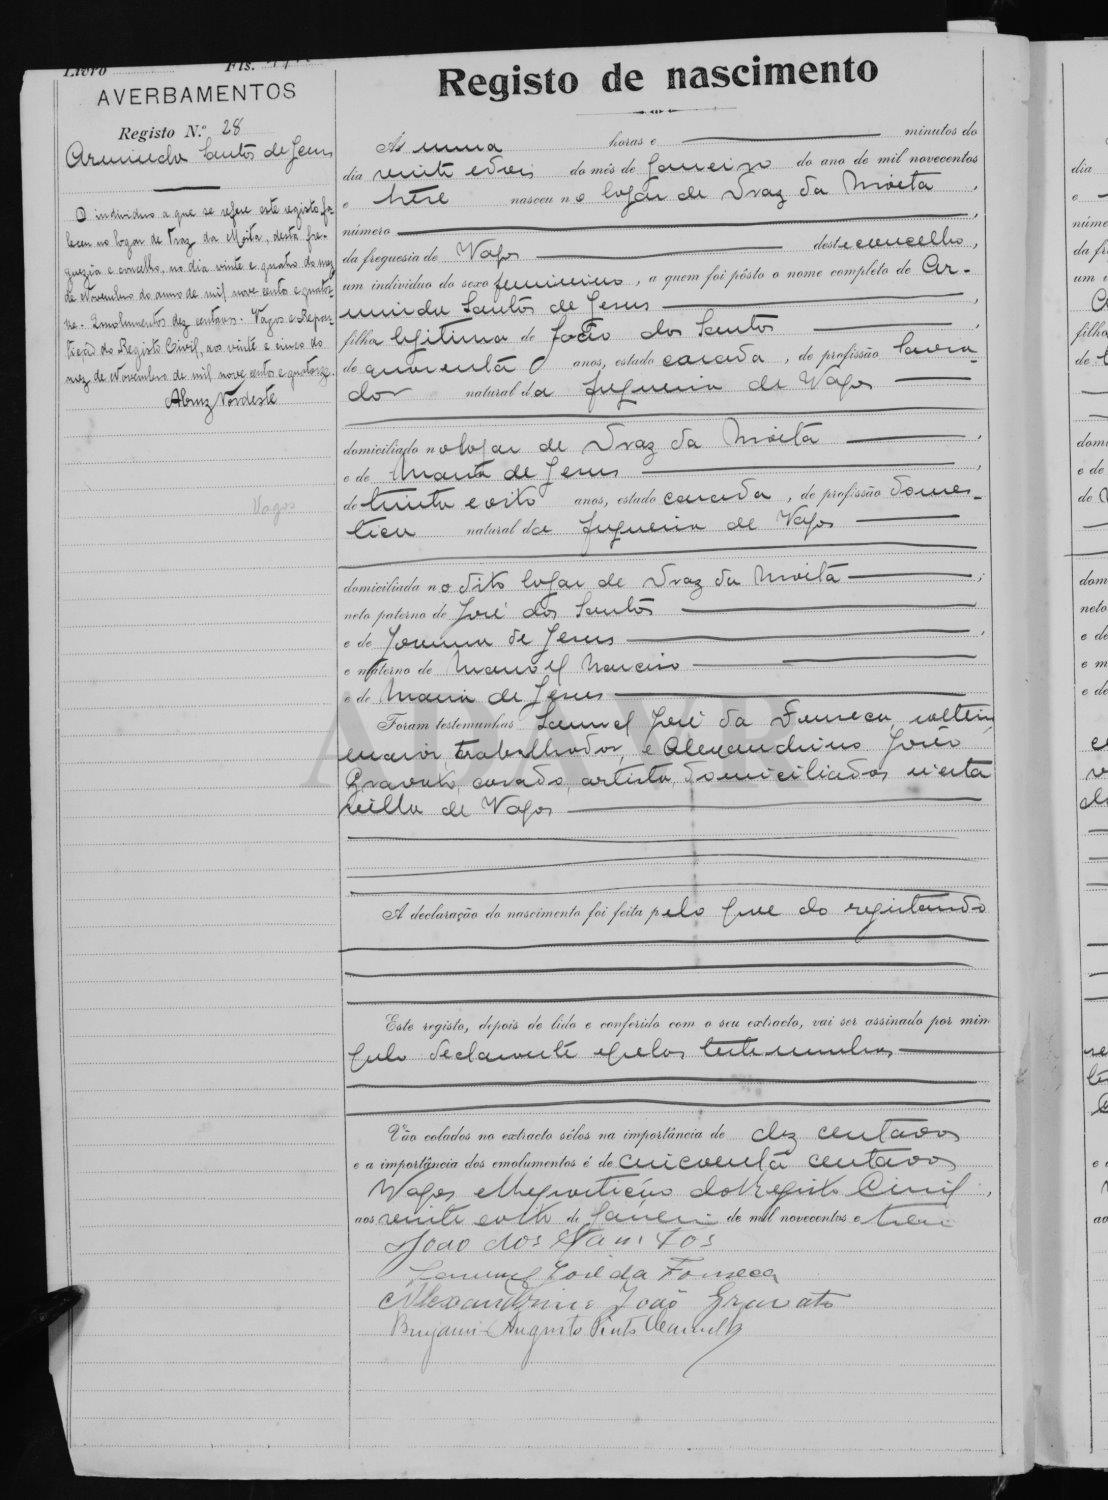 Livro Fls.
AVERBAMENTOS
Registo N.º 28
Arminda Santos de Jesus
O individuo a que se refere este registo fa-
leceu no logar de Traz da Moita, desta fre-
guezia e concelho, no dia vinte e quatro do mez
de Novembro do anno de mil nove centos e quator-
ze. Emolumentos dez centavos. Vagos e Repar-
tição do Registo Civil, aos vinte e cinco do
mez de Novembro de mil nove centos e quatorze.
Vagos
Registo de nascimento
Ás uma horas e minutos do
dia vinte e dois do mês de Janeiro do ano de mil novecentos
e treze nasceu no logar de Traz da Moita,
número
da freguesia de Vagos deste concelho,
um individuo do sexo femenino, a quem foi pôsto o nome completo de Ar-
minda Santos de Jesus
filha legitima de João dos Santos
de quarenta anos, estado casado, de profissão lavra-
dor natural da freguesia de Vagos
domiciliado no logar de Traz da Moita,
e de Maria de Jesus,
de trinta e oito anos, estado casada, de profissão domes-
tica natural da freguesia de Vagos
domiciliada no dito logar de Traz da Moita;
neto paterno de José dos Santos
e de Joanna de Jesus,
e materno de Manoel
e de Maria de Jesus
Foram testemunhas Samuel José da Fonseca, solteiro,
maior, trabalhador, e Alexandrino João
Gravato, casado, artista, domiciliados n'esta
villa de Vagos
A declaração do nascimento foi feita pelo pae do registando
Este registo, depois de lido e conferido com o seu extracto, vai ser assinado por mim
pelo declarante e pelas testemunhas
Vão colados no extracto sêlos na importância de dez centavos
e a importância dos emolumentos é de cincoenta centavos
Vagos e Repartição do Registo Civil,
aos vinte e oito de Janeiro de mil novecentos e treze
João dos Santos
Samuel José da Fonseca
Alexandrino João Gravato
Benjamin Augusto Pinto
ADAVR